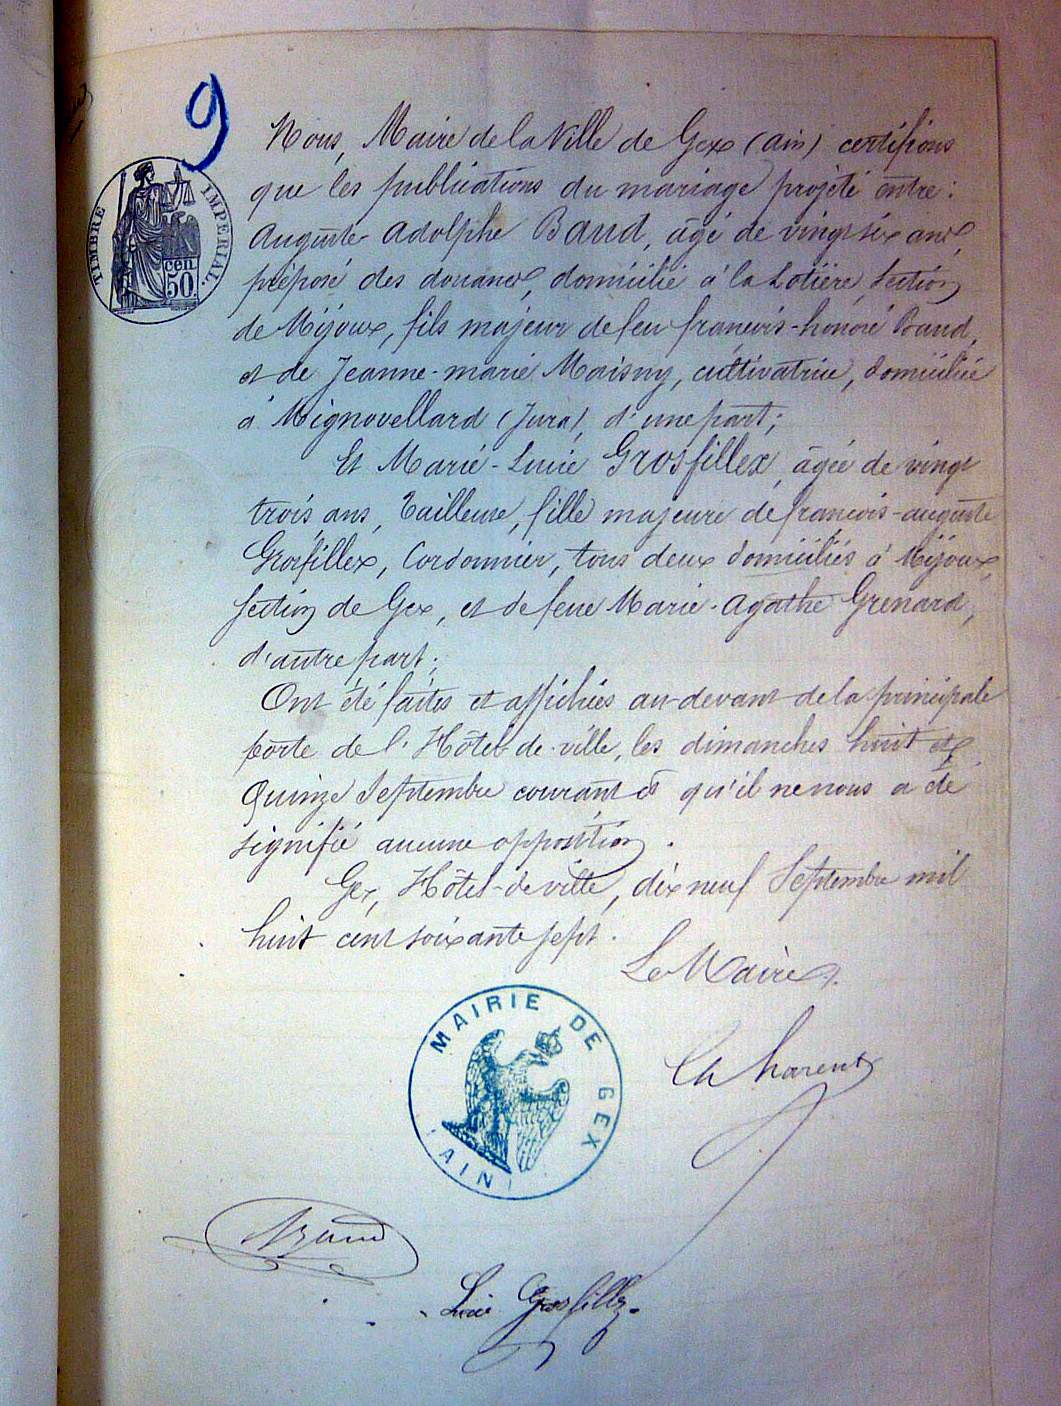 9
TIMBRE IMPÉRIAL.
50 cen
Nous, Maire de la Ville de Gex (ain) certifions
que les publications du mariage projeté entre :
Auguste Adolphe Baud, âgé de vingt six ans,
préposé des douanes, domicilié à la Lotière, Section
de Mijoux, fils majeur de feu françois-honoré Baud,
et de Jeanne-marie Moisny, cultivatrice, domiciliée
à Mignovellard (Jura), d'une part ;
Et Marie-Lucie Grosfillex, âgée de vingt
trois ans, Tailleuse, fille majeure de françois-auguste
Grosfillex, Cordonnier, tous deux domiciliés à Mijoux,
Section de Gex, et de feue Marie-Agathe Grenard,
d'autre part ;
Ont été faites et affichées au-devant de la principale
porte de l'Hôtel-de-ville, les dimanches huit et
Quinze Septembre courant et qu'il ne nous a été
signifié aucune opposition.
Gex, Hôtel-de-ville, dix neuf Septembre mil
huit cent soixante sept.
Le Maire
MAIRIE DE GEX
(AIN)
Baud
Lucie Grosfillex